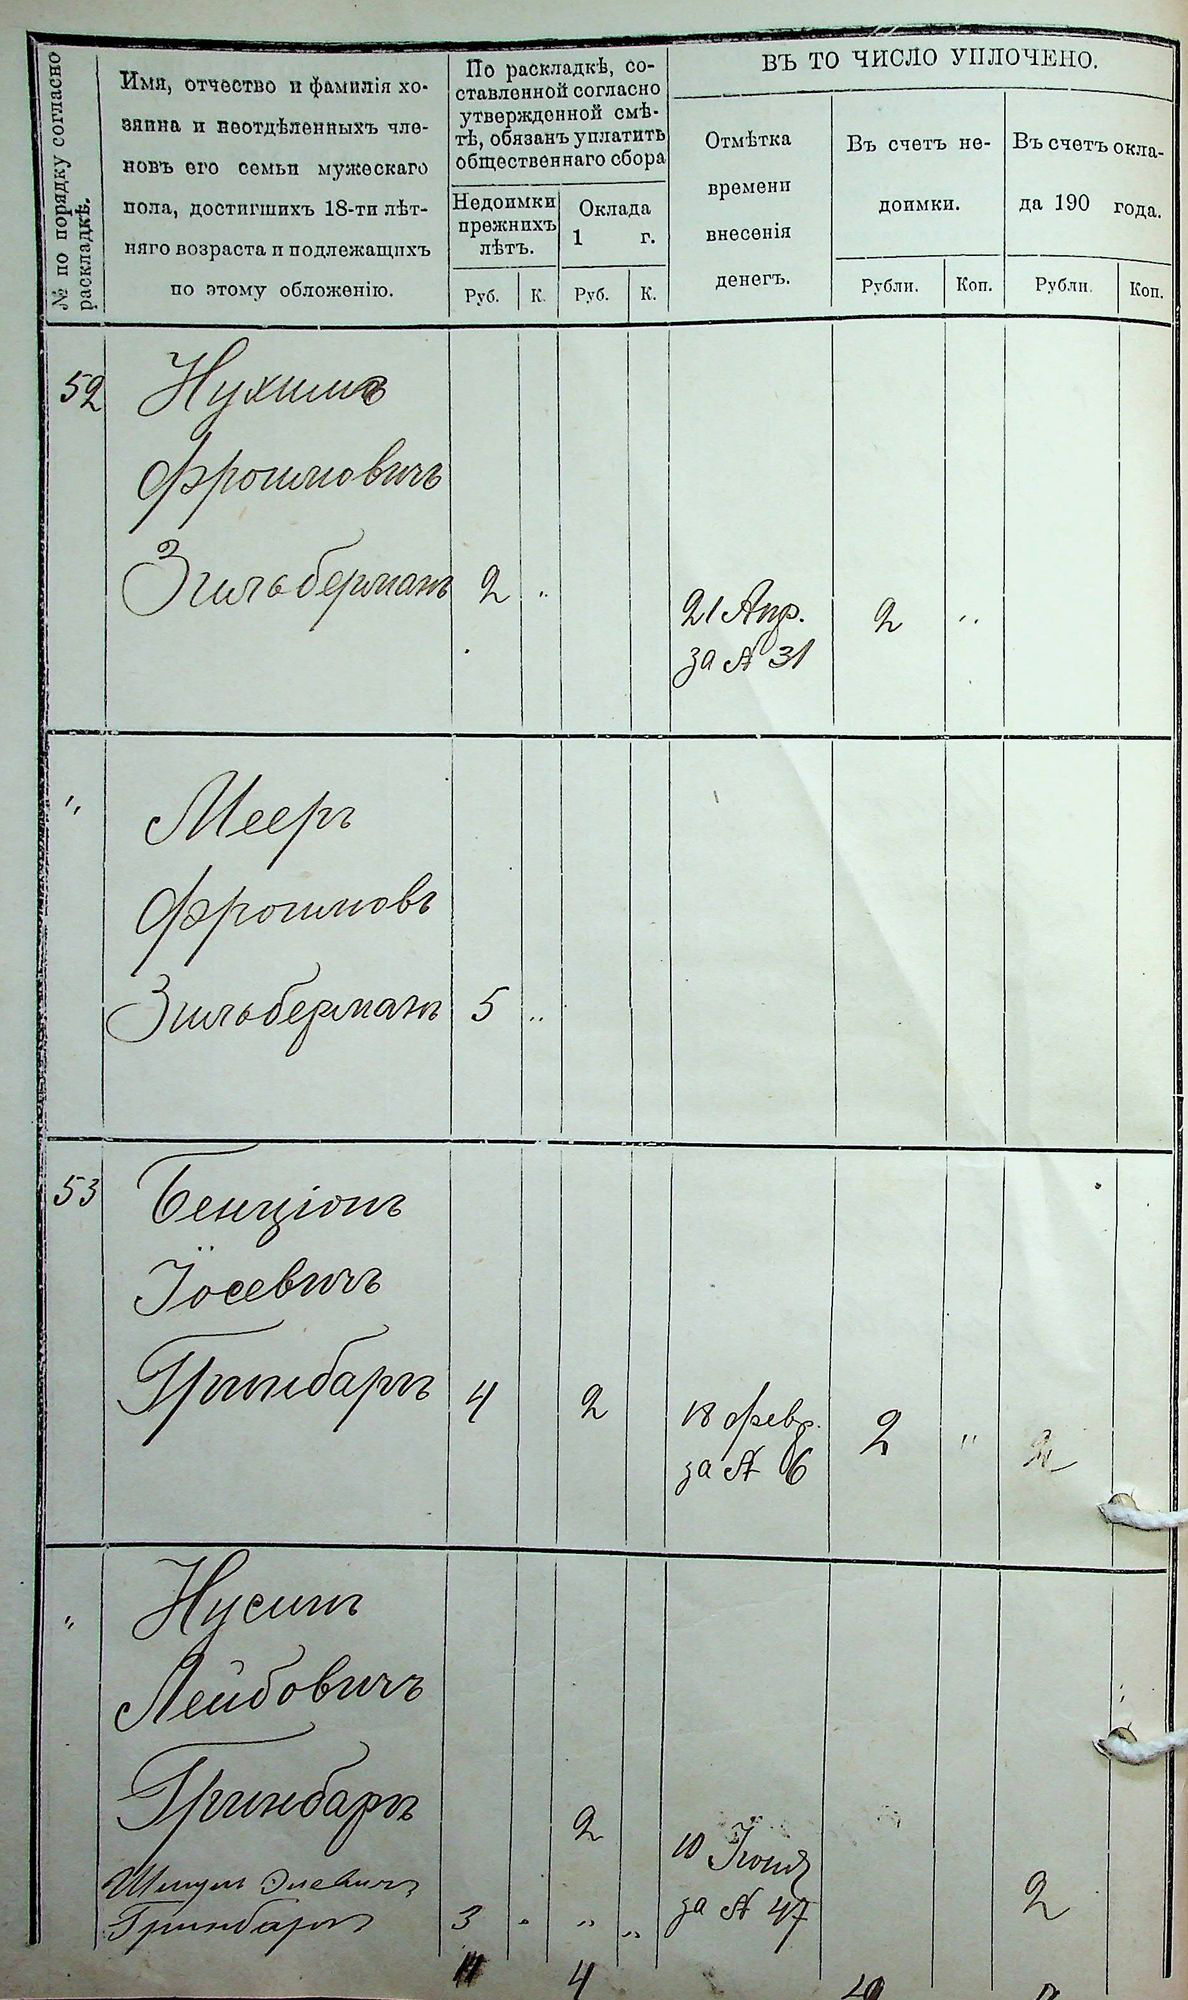 № по порядку согласно
раскладкѣ.
Имя, отчество и фамилія хо-
зяина и неотдѣленныхъ чле-
новъ его семьи мужескаго
пола, достигшихъ 18-ти лѣт-
няго возраста и подлежащихъ
по этому обложенію.
По раскладкѣ, со-
ставленной согласно
утвержденной смѣ-
тѣ, обязанъ уплатить
общественнаго сбора
Недоимки
прежнихъ
лѣтъ.
Оклада
1 г.
Руб. К. Руб. К.
ВЪ ТО ЧИСЛО УПЛОЧЕНО.
Отмѣтка
времени
внесенія
денегъ.
Въ счетъ не-
доимки.
Въ счетъ окла-
да 190 года.
Рубли. Коп. Рубли. Коп.
52 Нухимъ
Фроимовичъ
Зильберманъ 2 "
21 Апр. 2 "
за № 31
" Мееръ
Фроимовъ
Зильберманъ 5 "
53 Бенціонъ
Іосевичъ
Гринбарг 4 2
18 февр. 2 " 2
за № 6
" Нусинъ
Лейбовичъ
Гринбарг 2
10 Іюня
за № 47 2
Гринбарг 3 " " "
11 4